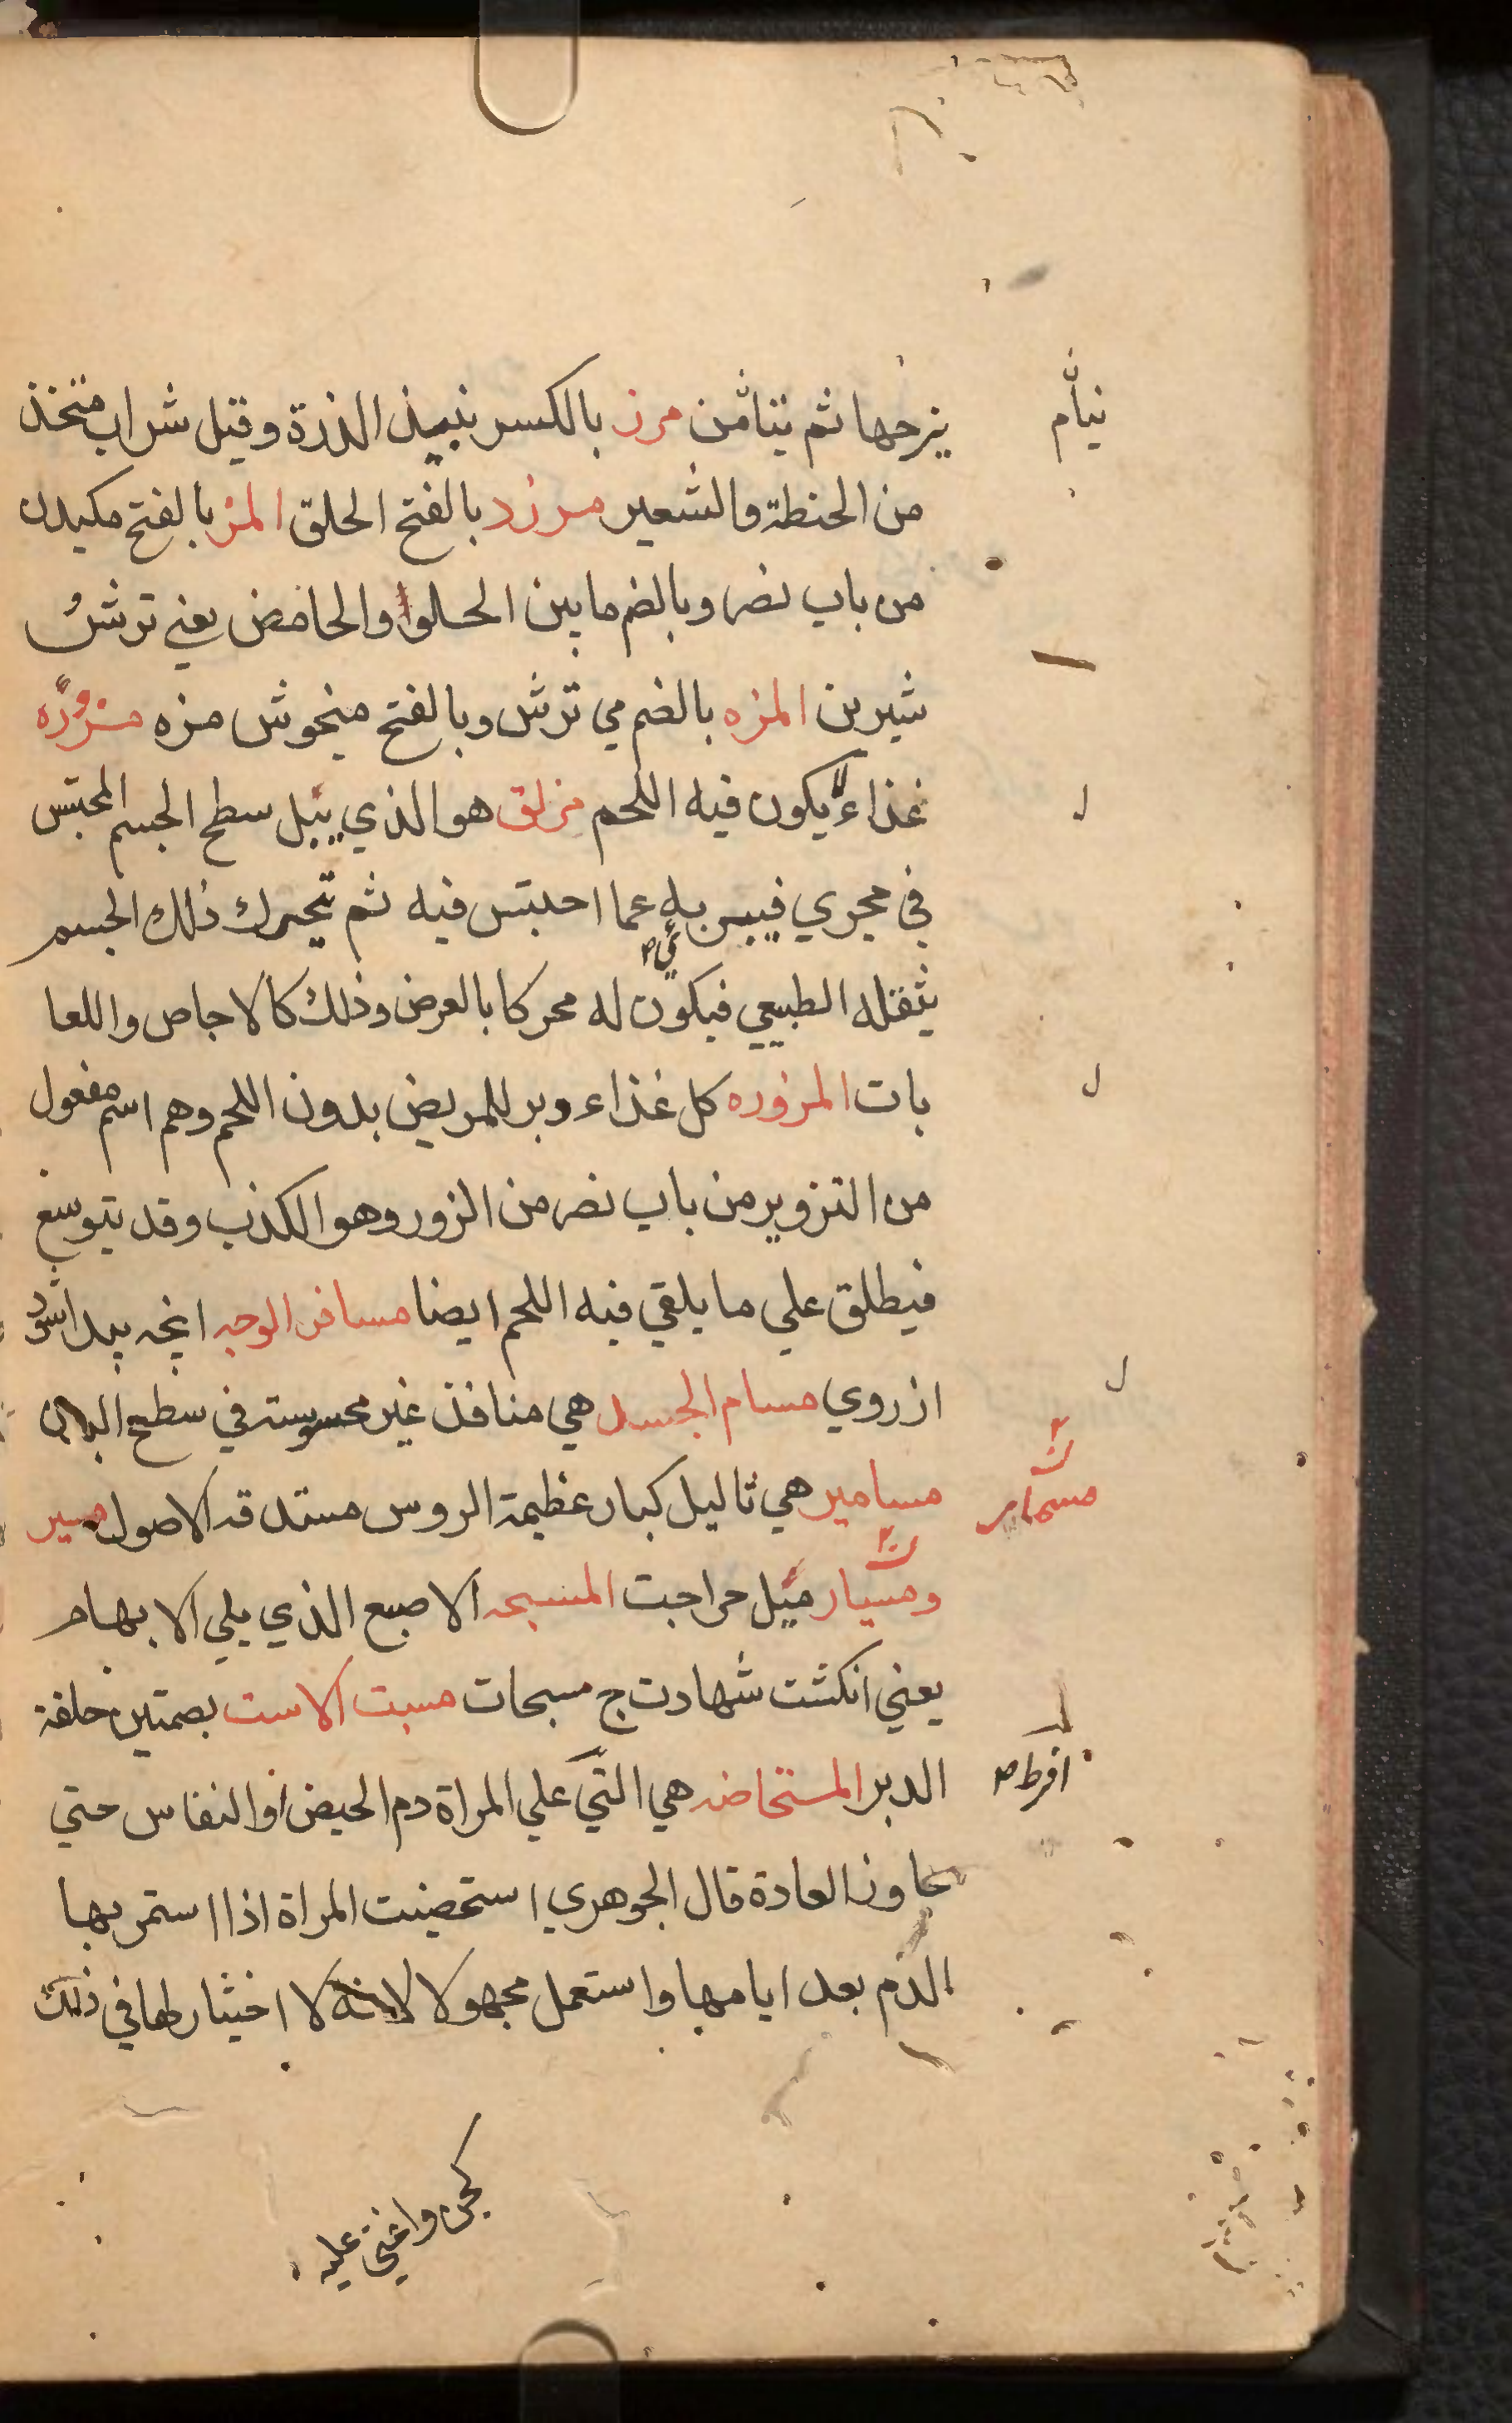 ينام
يزحها ثم تنامن مرز بالكسر نبيذ الذرة وقيل شراب متخذ
من الحنطة والشعير مرزد بالفتح الحلق المز بالفتح مكيدن
من باب نصر وبالضم ما بين الحلوا والحامض يعني ترش
شيرين المزه بالضم مي ترش وبالفتح ميخوش مزه مزوره
غذاء لا يكون فيه اللحم مزلق هو الذي يبل سطح الجسم المحتبس
في مجري فيبريه عما احتبس فيه ثم تحرك ذلك الجسم
بثقله الطبيعي فيكون له محركا بالعرض وذلك كالاجاص واللعا
بات المزوره كل غذاء دبر للمريض بدون اللحم وهم اسم مفعول
من التزوير من باب نصر من الزور وهو الكذب وقد يتوسع
فيطلق علي ما يلقي فيه اللحم ايضا مسافر الوجه انچه پيدا شود
از روي مسام الجسد هي منافذ غير محسوسته في سطح البدن
مسمار
مسامير هي ثاليل كبار عظيمة الروس مستدقه الاصول مسير
ومسيار ميل جراحت المسبحه الاصبع الذي يلي الابهام
يعني انكشت شهادت ج مسبحات مسبت الاست بصمتين حلقة
افرط ص
الدبر المستحاضه هي التي علي المراة دم الحيض او النفاس حتي
جاوز العادة قال الجوهري استحضيت المراة اذا استمر بها
الدم بعد ايامها واستعمل مجهولا لانه لا اختيار لها في ذلك
كجن واغشي عليه